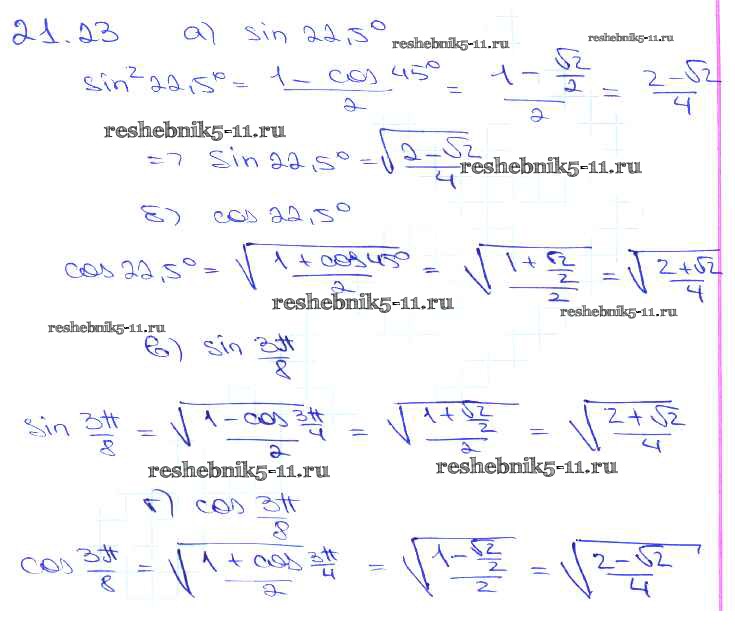 21.23 а) sin 22,5° reshebnik5-11.ru reshebnik5-11.ru
sin² 22,5° = (1 - cos 45°)/2 = (1 - √2/2)/2 = (2 - √2)/4
reshebnik5-11.ru
=> sin 22,5° = √((2 - √2)/4) reshebnik5-11.ru
б) cos 22,5°
cos 22,5° = √((1 + cos 45°)/2) = √((1 + √2/2)/2) = √((2 + √2)/4)
reshebnik5-11.ru reshebnik5-11.ru
reshebnik5-11.ru
в) sin 3π/8
sin 3π/8 = √((1 - cos 3π/4)/2) = √((1 + √2/2)/2) = √((2 + √2)/4)
reshebnik5-11.ru reshebnik5-11.ru
г) cos 3π/8
cos 3π/8 = √((1 + cos 3π/4)/2) = √((1 - √2/2)/2) = √((2 - √2)/4)